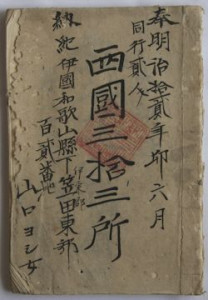 奉
明治拾貳年卯六月
同行貳人
西國三拾三所
納
紀伊國和歌山縣下
笠田東部
百貳番地
山口ヨシ女